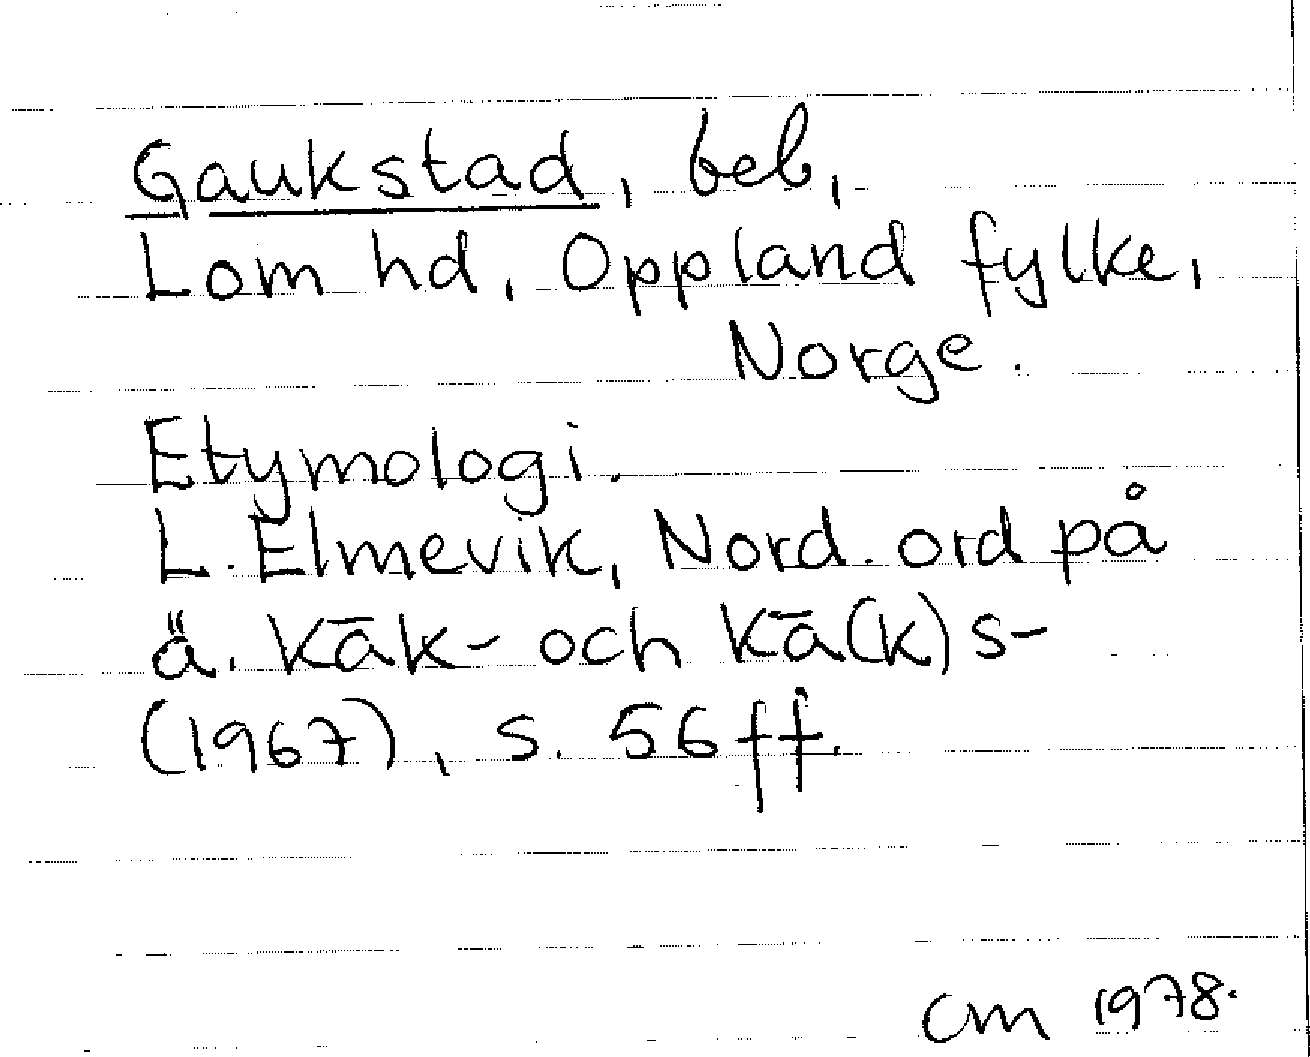 Gaukstad, beb,
Lom hd, Oppland fylke,
Norge.
Etymologi.
L. Elmevik, Nord. ord på
ä. kāk- och kā(k)s-
(1967), s. 56 ff.
CM 1978.